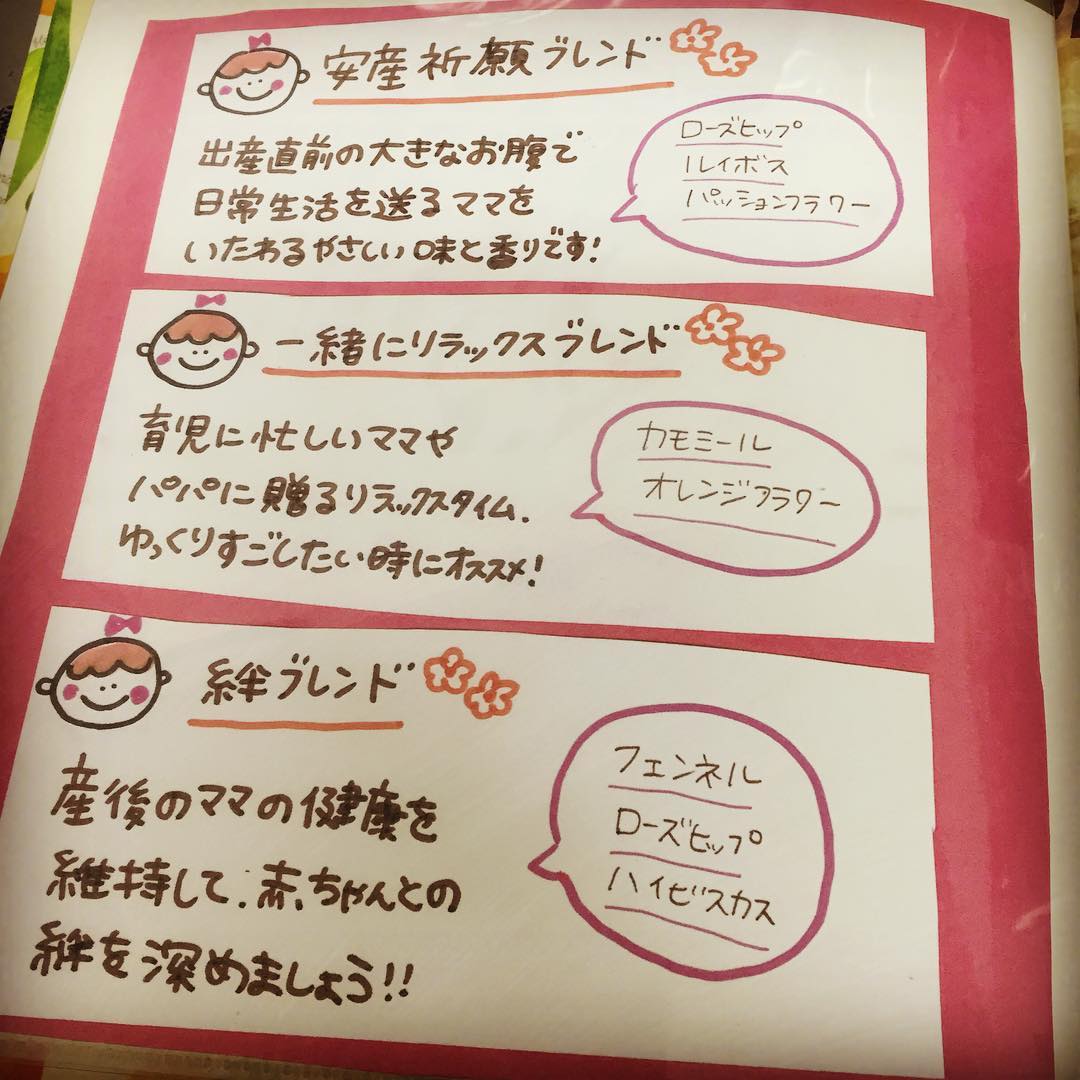 安産祈願ブレンド
出産直前の大きなお腹で
日常生活を送るママを
いたわるやさしい味と香りです!
ローズヒップ
ルイボス
パッションフラワー
一緒にリラックスブレンド
育児に忙しいママや
パパに贈るリラックスタイム.
ゆっくりすごしたい時にオススメ!
カモミール
オレンジフラワー
絆ブレンド
産後のママの健康を
維持して、赤ちゃんとの
絆を深めましょう!!
フェンネル
ローズヒップ
ハイビスカス